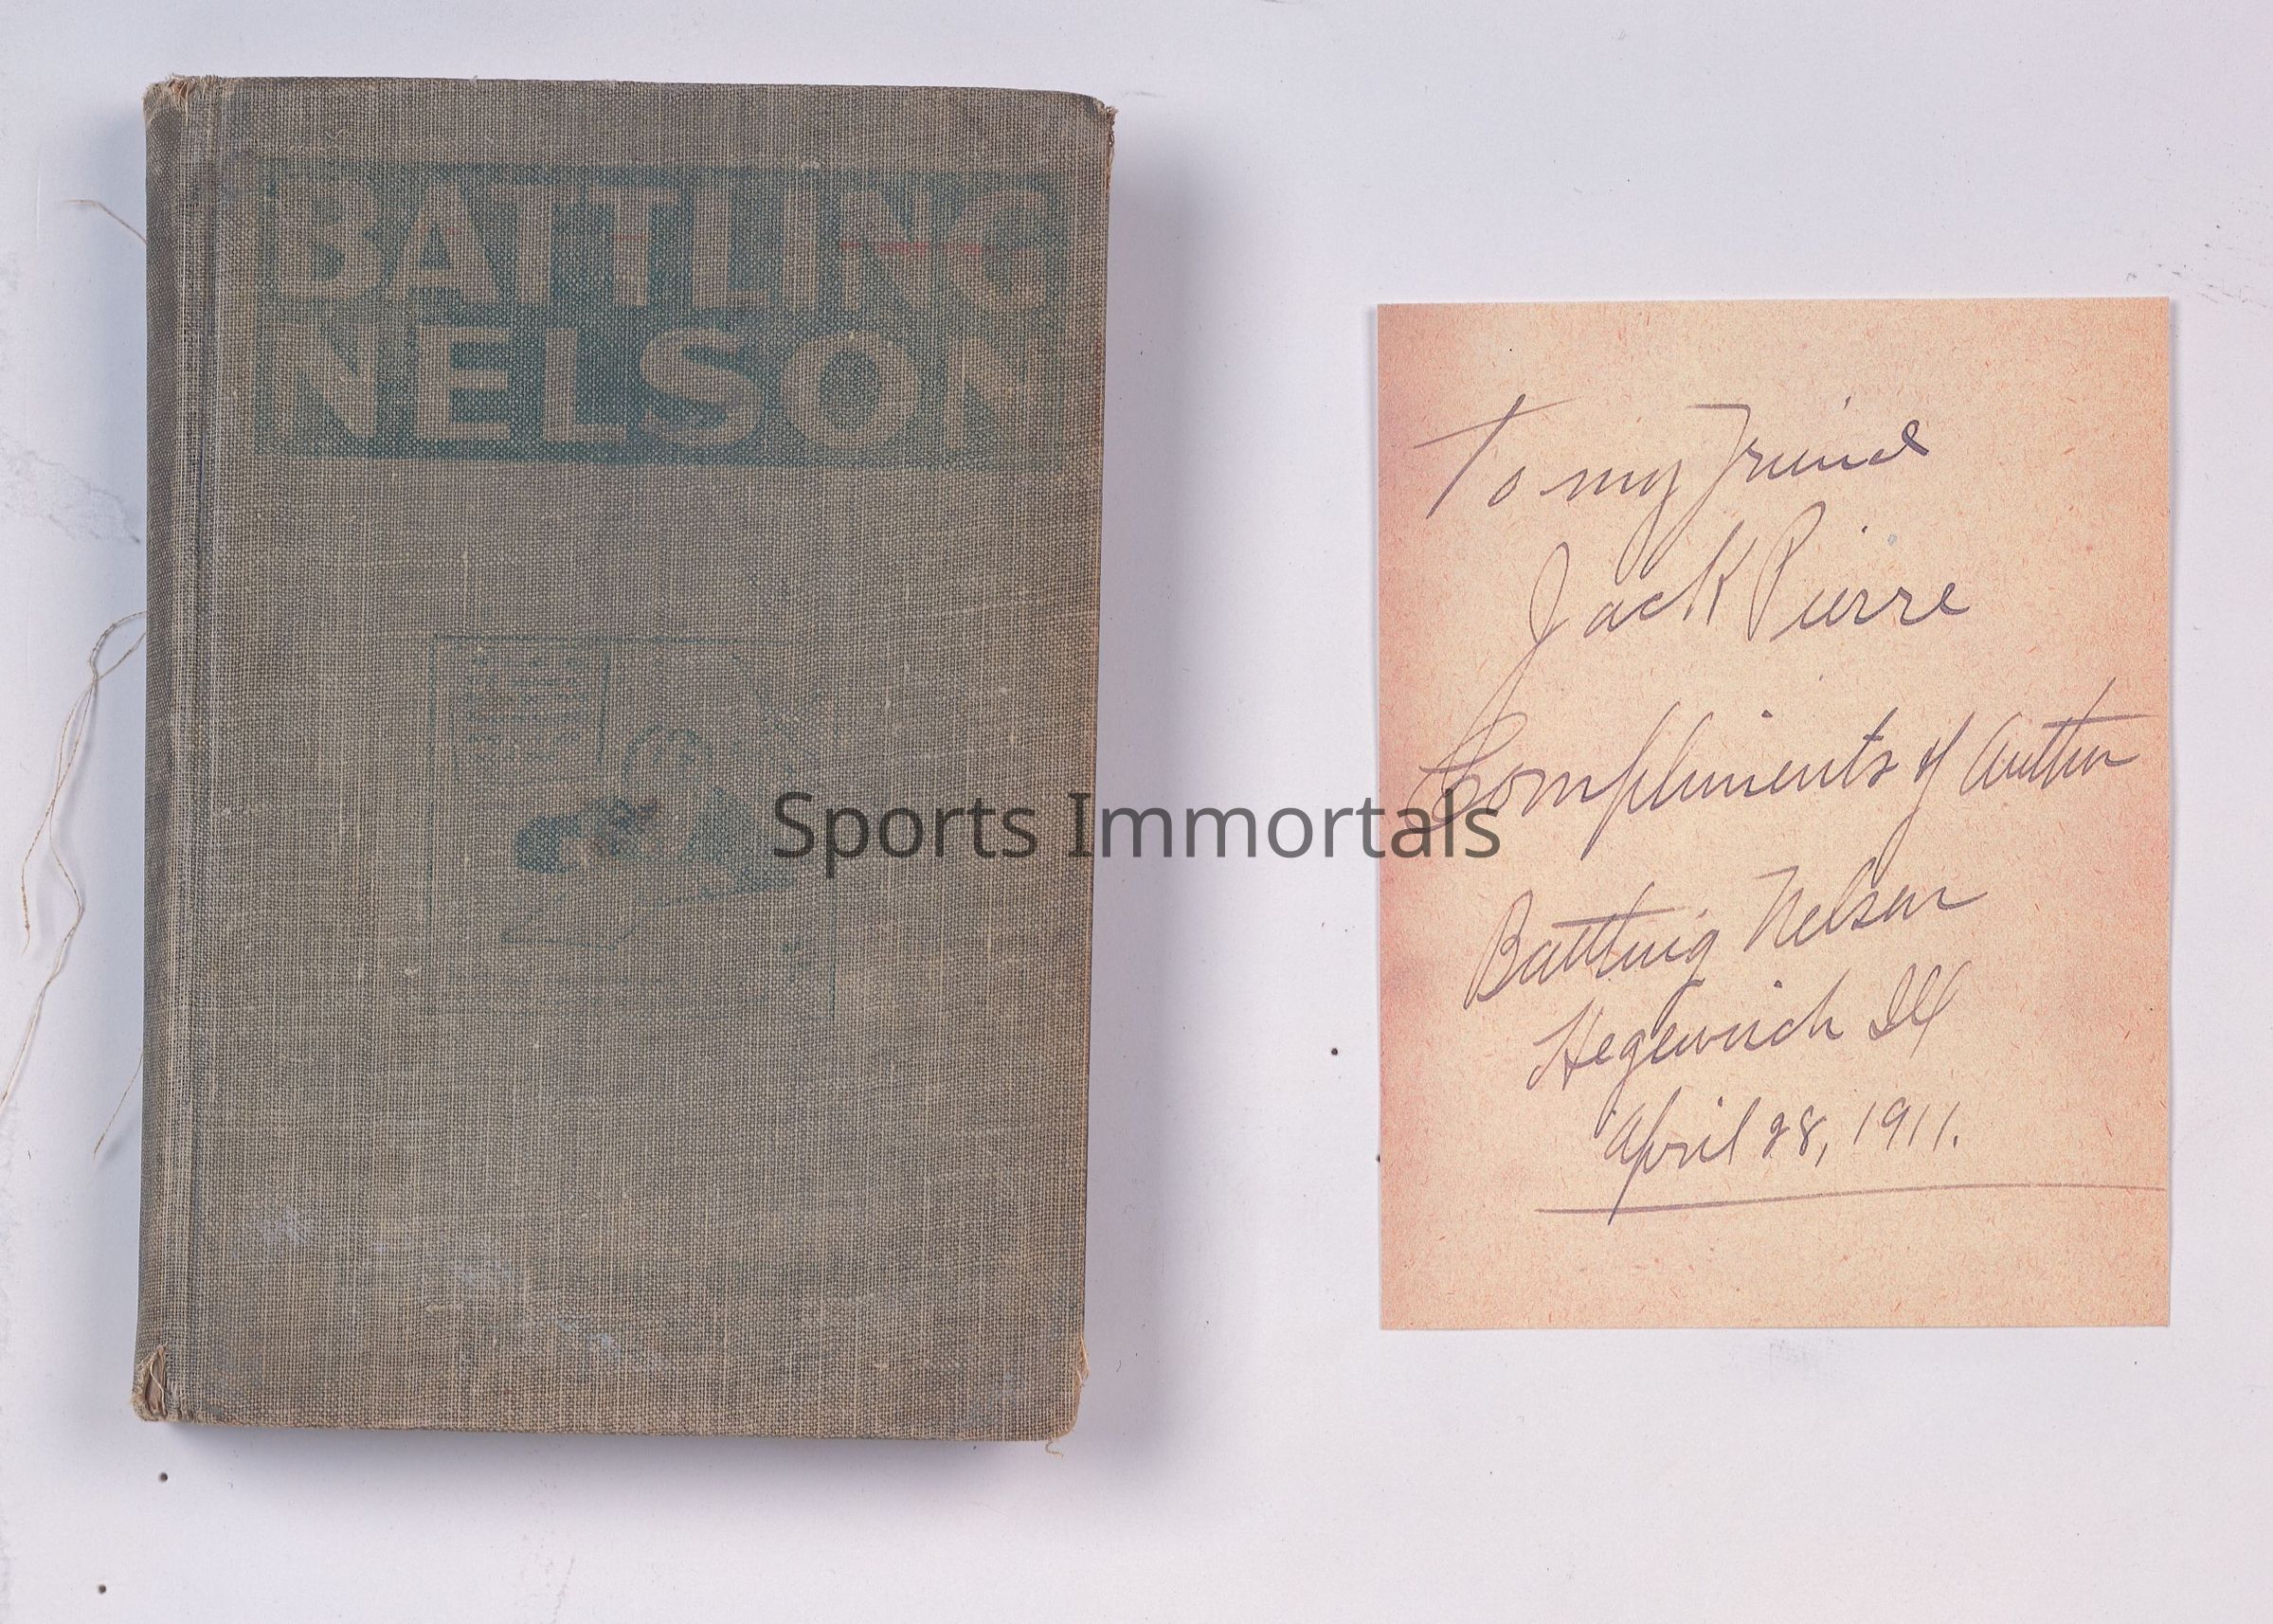 BATTLING
NELSON
Sports Immortals
To my Friend
Jack Pierre
Compliments of Author
Battling Nelson
Hegewisch Ill
April 28, 1911.